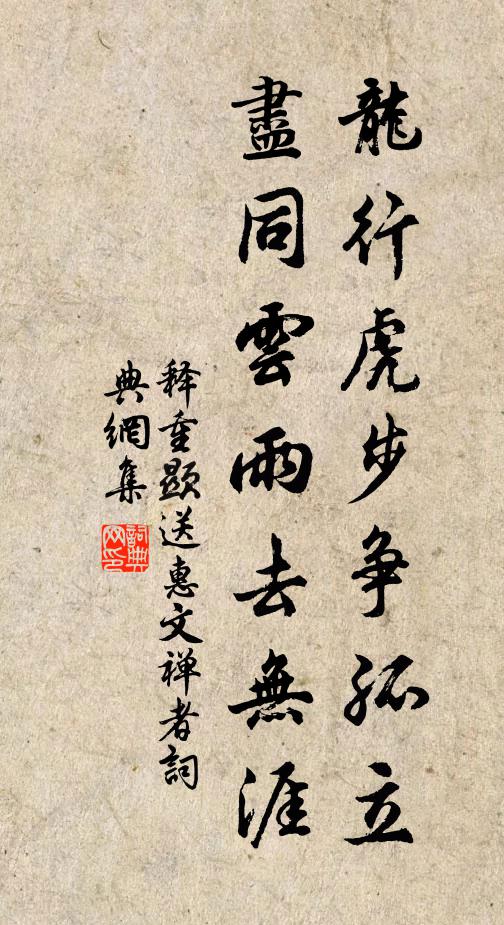 龍行虎步争孤立
盡同雲雨去無涯
释重顯送惠文禅者詞
典網集
詞典网印